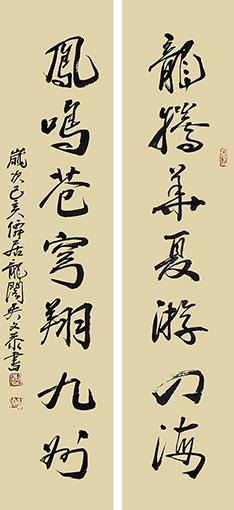 龍騰華夏游四海
鳳鳴苍穹翔九州
歲次己亥僑居龍閣吳文泰書